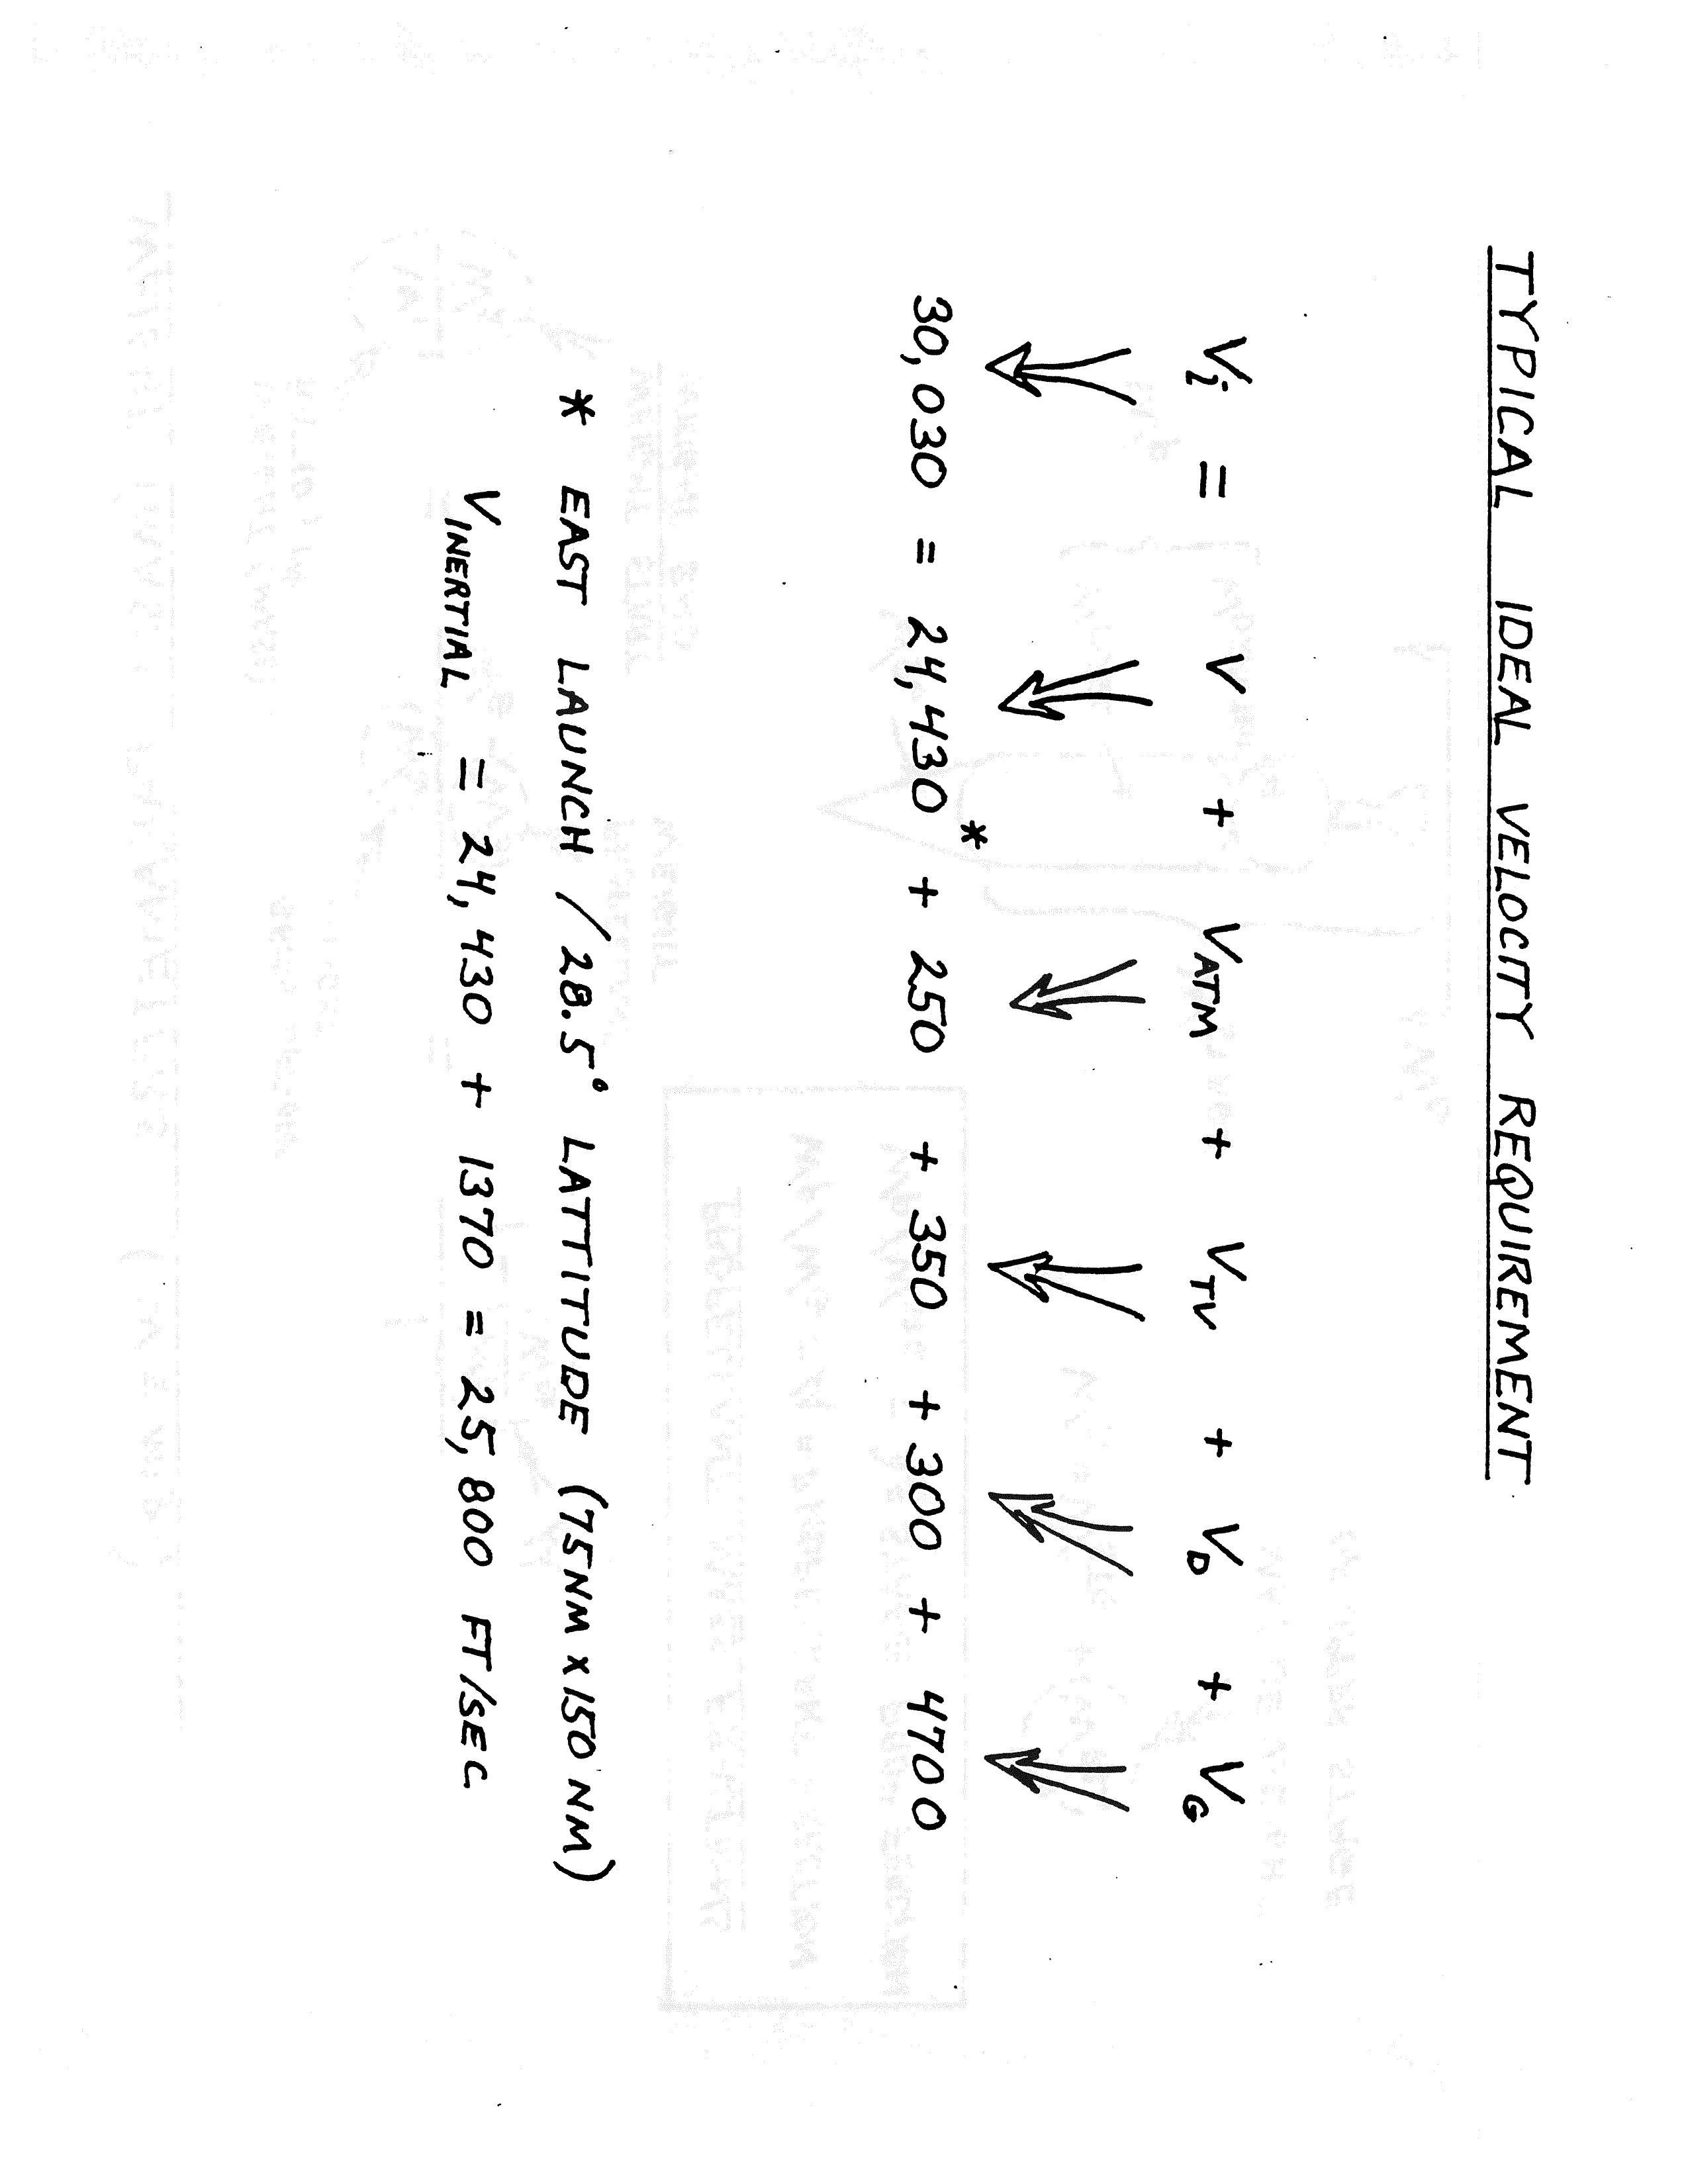 TYPICAL IDEAL VELOCITY REQUIREMENT
Vi = V + VATM + VTV + VD + VG
30,030 = 24,430* + 250 + 350 + 300 + 4700
* EAST LAUNCH / 28.5° LATTITUDE (75NM X 150 NM)
VINERTIAL = 24,430 + 1370 = 25,800 FT/SEC